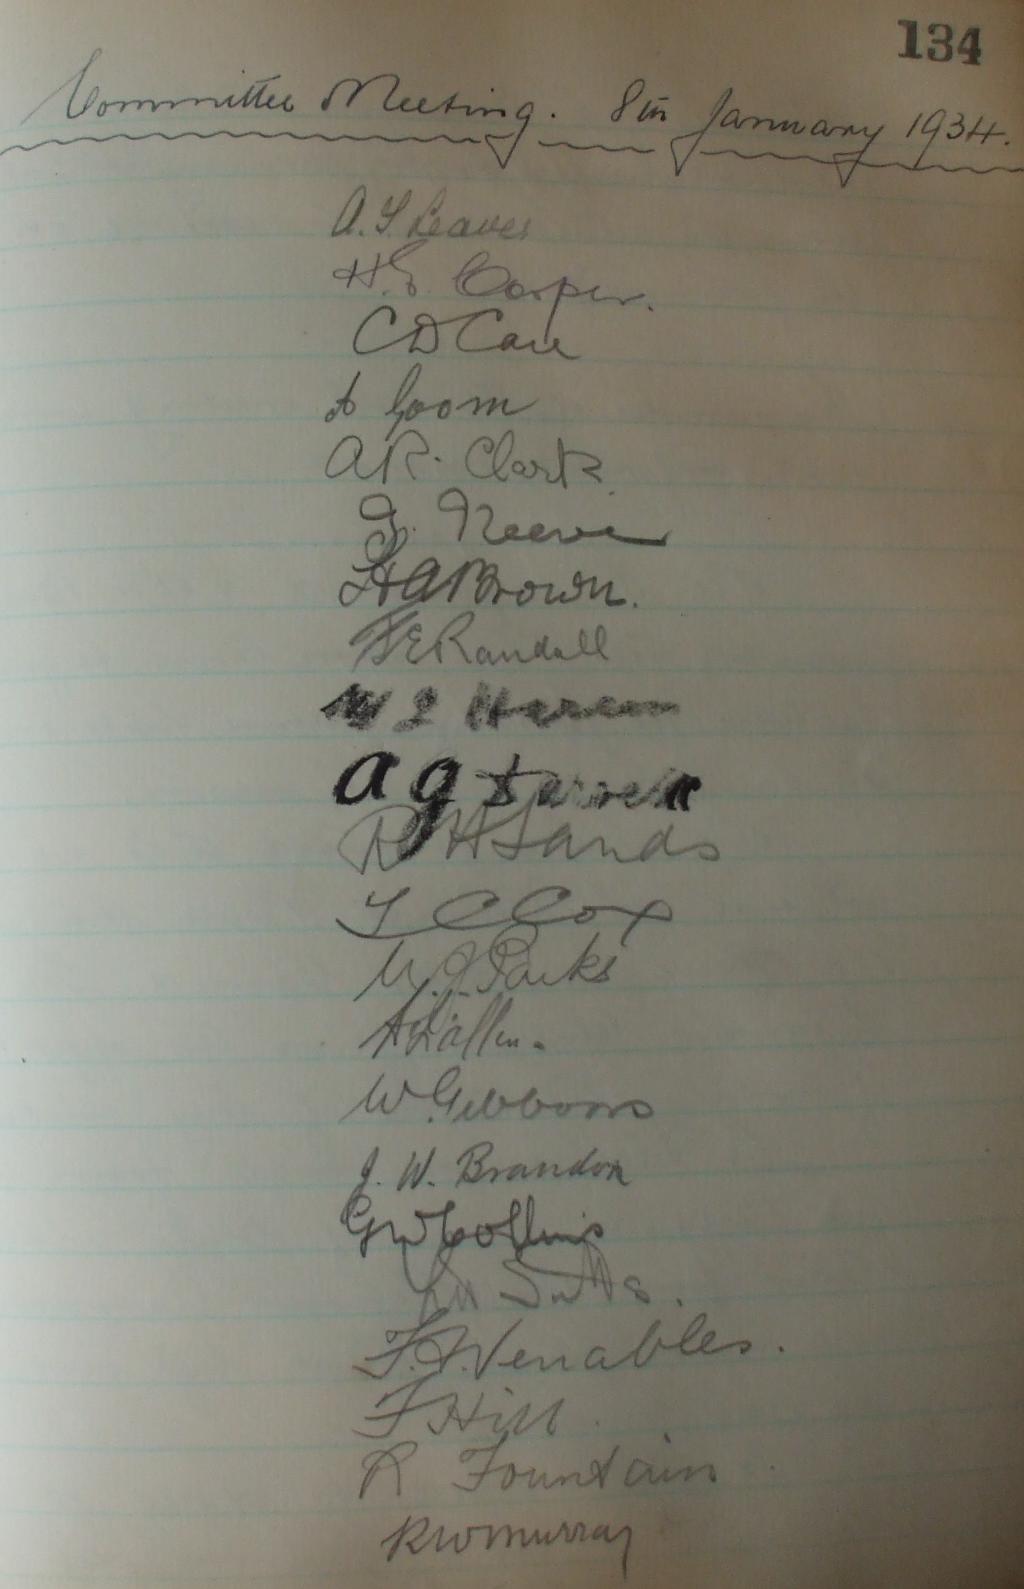 134
Committee Meeting. 8th January 1934.
A. S. Leaver
H. E. Cooper.
C D Care
A Goom
A R. Clark
G. Reeve
H A Brown.
F E Randall
W
A G
R H Sands
C Cox
W. J. Parks
A
W Gibbons
J. W. Brandon
G W Collins
F. J. Venables.
F Hill
R Fountain
R W Murray